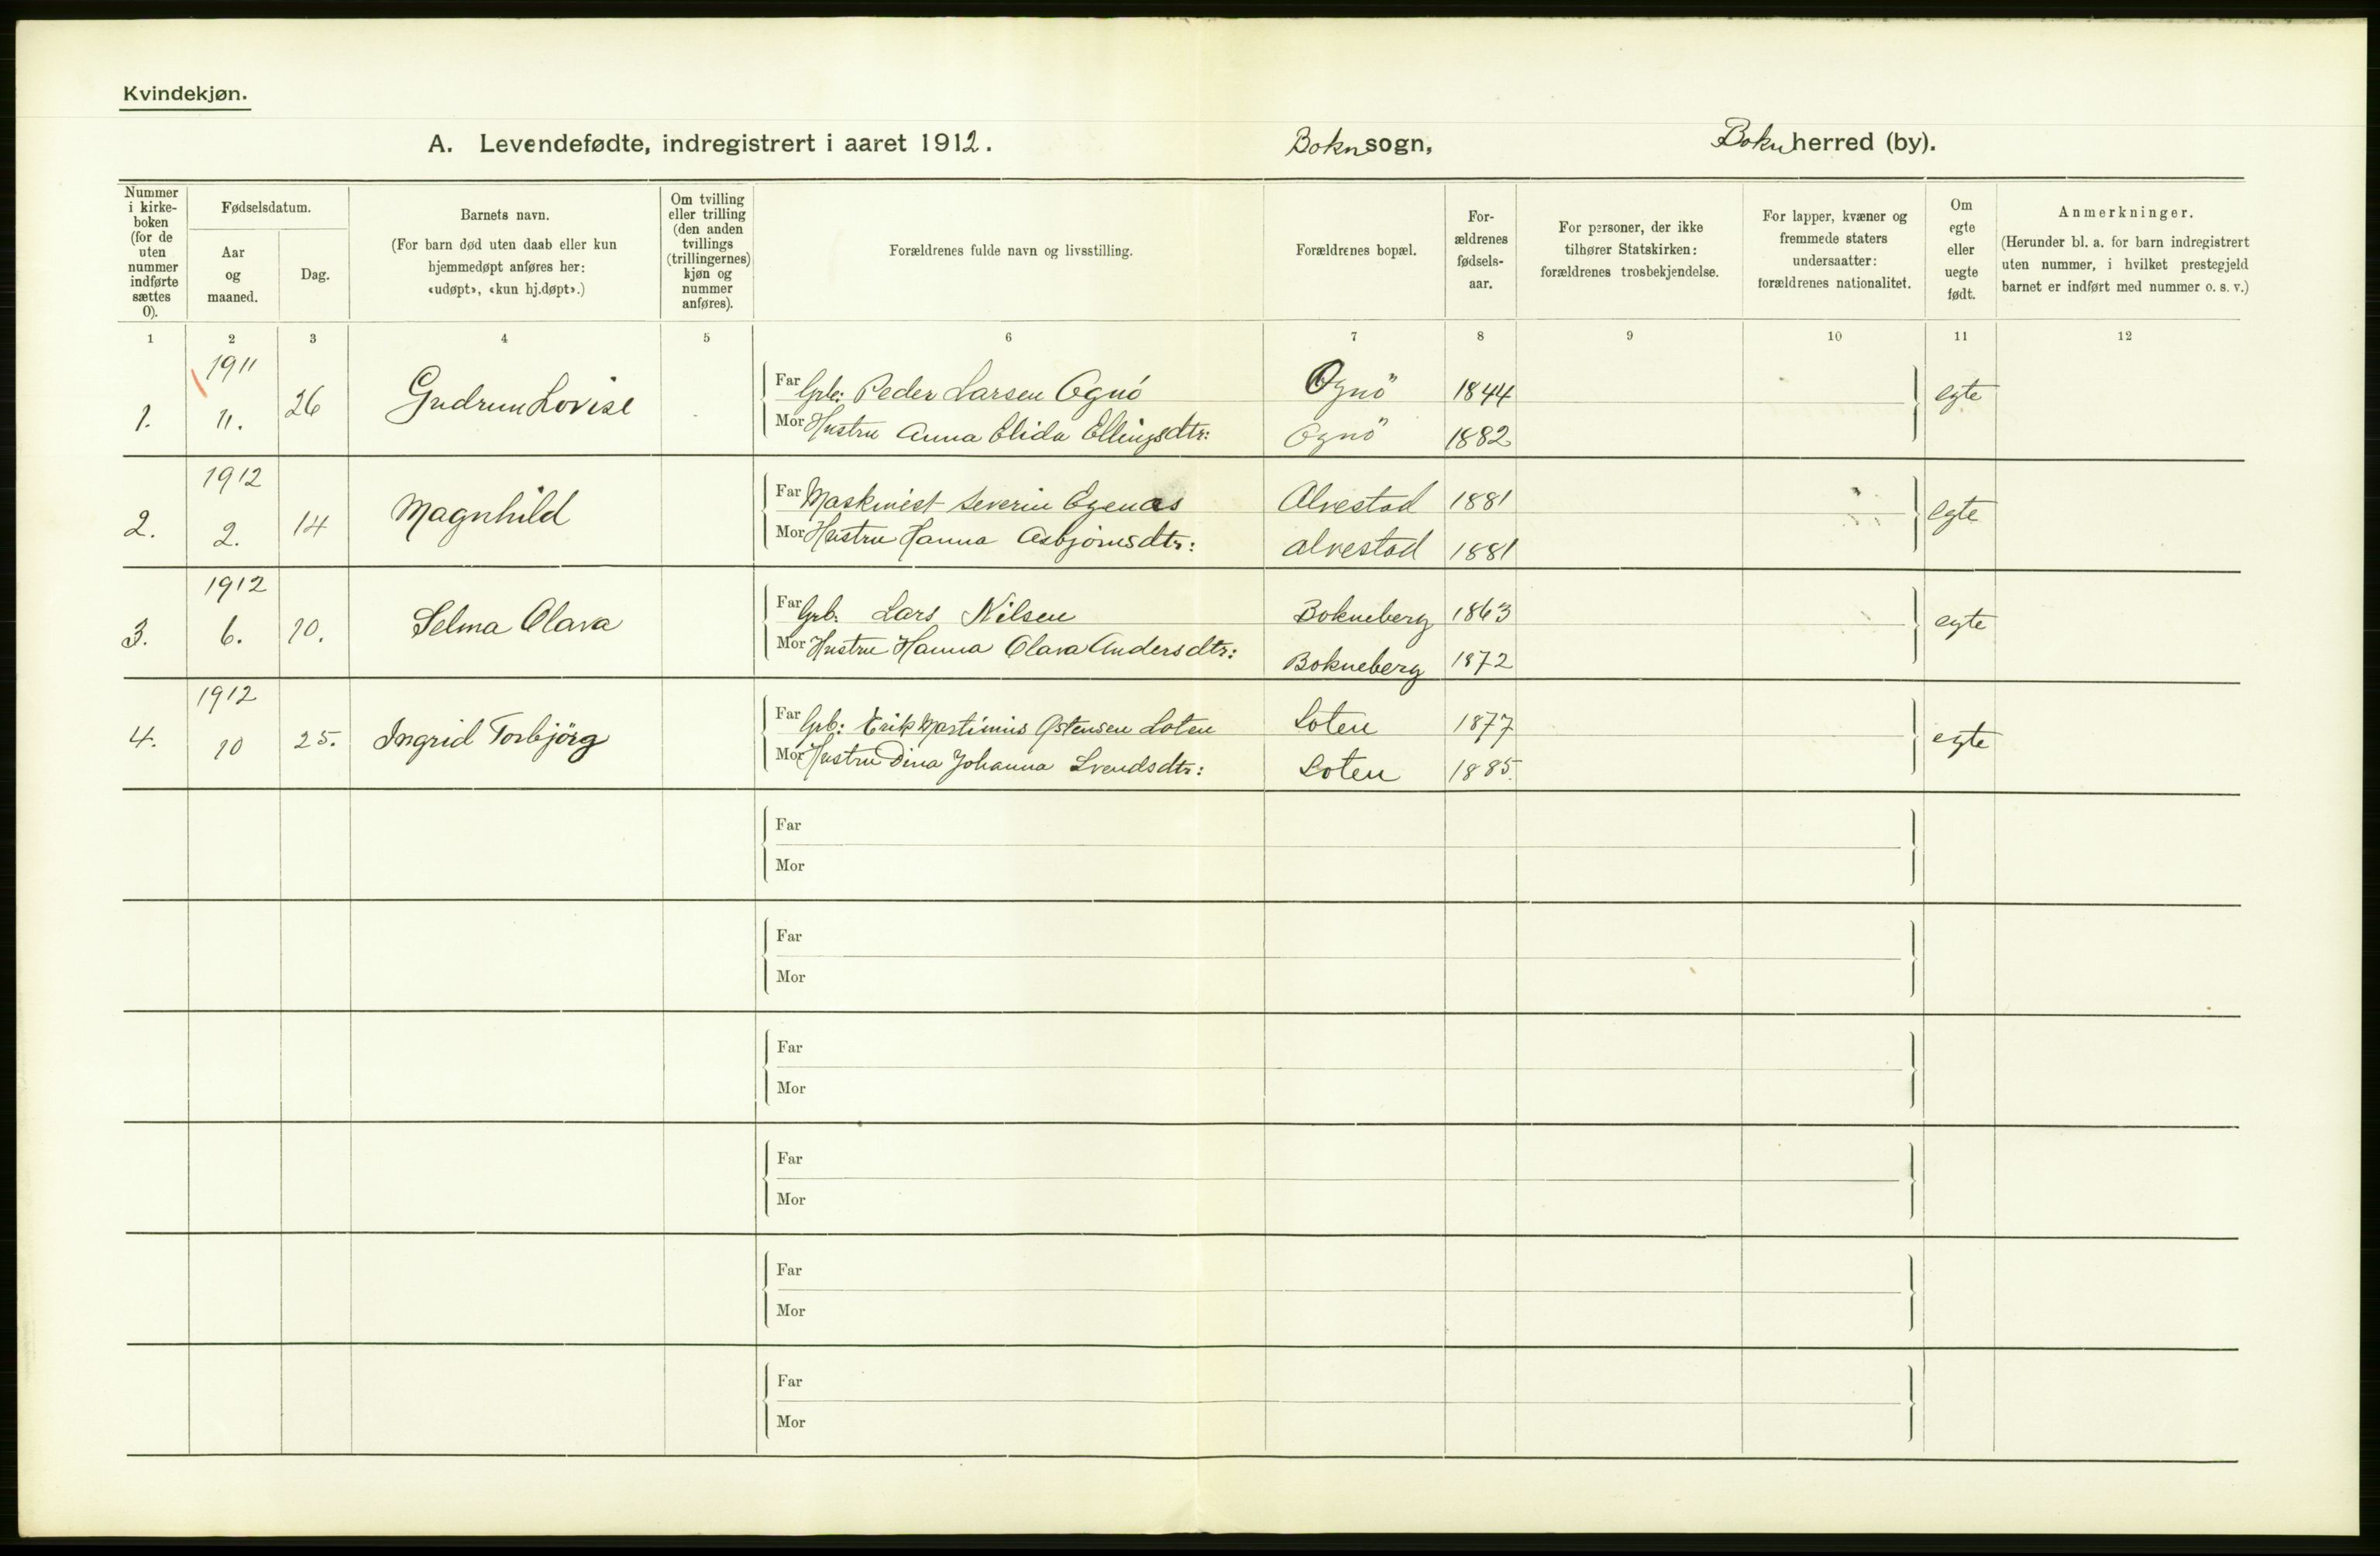 Kvindekjøn.
A. Levendefødte, indregistrert i aaret 1912. Bokn sogn, Bokn herred (by).
Nummer i kirke- boken (for de uten nummer indførte sættes 0).
Fødselsdatum.
Aar og maaned.
Dag.
Barnets navn.
(For barn død uten daab eller kun hjemmedøpt anføres her: «udøpt», «kun hj.døpt».)
Om tvilling eller trilling (den anden tvillings (trillingernes) kjøn og nummer anføres).
Forældrenes fulde navn og livsstilling.
Forældrenes bopæl.
For- ældrenes fødsels- aar.
For personer, der ikke tilhører Statskirken: forældrenes trosbekjendelse.
For lapper, kvæner og fremmede staters undersaatter: forældrenes nationalitet.
Om egte eller uegte født.
Anmerkninger.
(Herunder bl. a. for barn indregistrert uten nummer, i hvilket prestegjeld barnet er indført med nummer o. s. v.)
1 2 3 4 5 6 7 8 9 10 11 12
1911
1. 11. 26 Gudrun Lovise Far Grb: Peder Larsen Ognö Ognö 1844 egte
Mor Hustru Anna Elida Ellingsdtr: Ognö 1882
1912
2. 2. 14 Magnhild Far Maskinist Severin Egenæs Alvestad 1881 egte
Mor Hustru Hanna Asbjörnsdtr: Alvestad 1881
1912
3. 6. 10. Selma Olava Far Grb. Lars Nilsen Bokneberg 1863 egte
Mor Hustru Hanna Olava Andersdtr: Bokneberg 1872
1912
4. 10 25. Ingrid Torbjörg Far Grb: Erik Martinius Ostensen Loten Loten 1877 egte
Mor Hustru Dina Johanna Svendsdtr: Loten 1885.
Far
Mor
Far
Mor
Far
Mor
Far
Mor
Far
Mor
Far
Mor